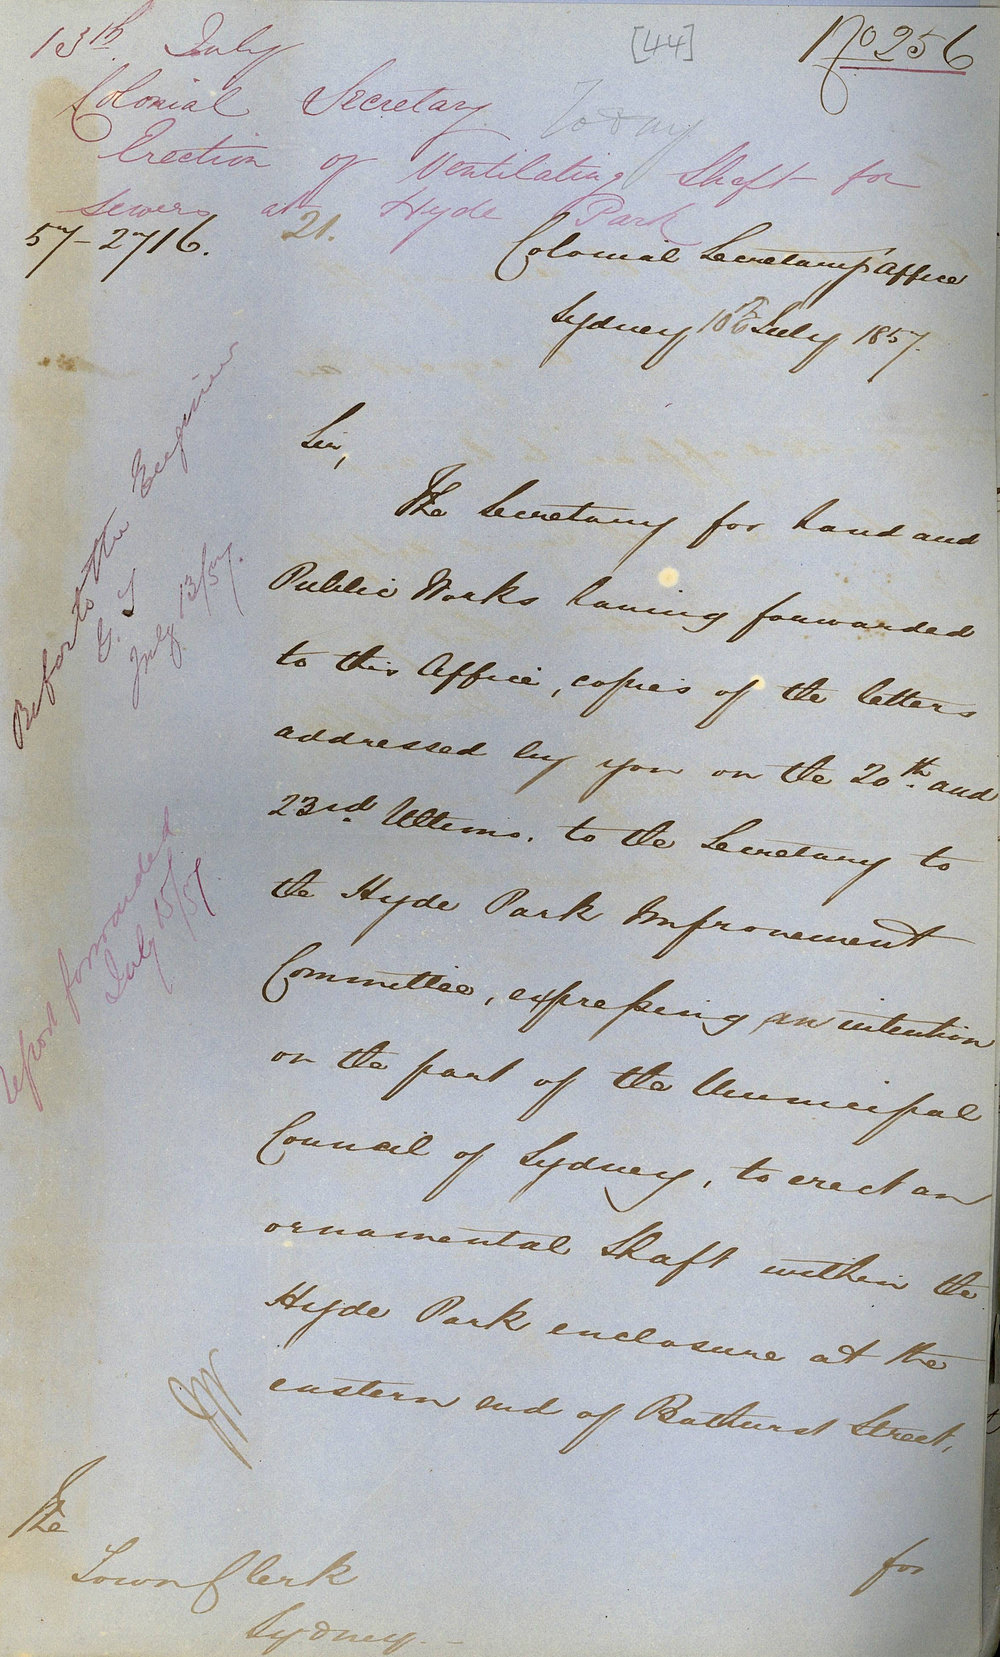 13th July
[44]
No 256
Colonial Secretary
Today
Erection of Ventilating Shaft for
Sewers at Hyde Park
57-2716. 21.
Colonial Secretary's Office
Sydney 10th July 1857.
Sir,
The Secretary for Land and
Public Works having forwarded
to this Office, copies of the letters
addressed by you on the 20th and
23rd Ultimo. to the Secretary to
the Hyde Park Improvement
Committee, expressing an intention
on the part of the Municipal
Council of Sydney, to erect an
ornamental Shaft within the
Hyde Park enclosure at the
eastern end of Bathurst Street,
for
The
Town Clerk
Sydney.
Refer to the Engineer
July 13/57.
Report forwarded
July 15/57